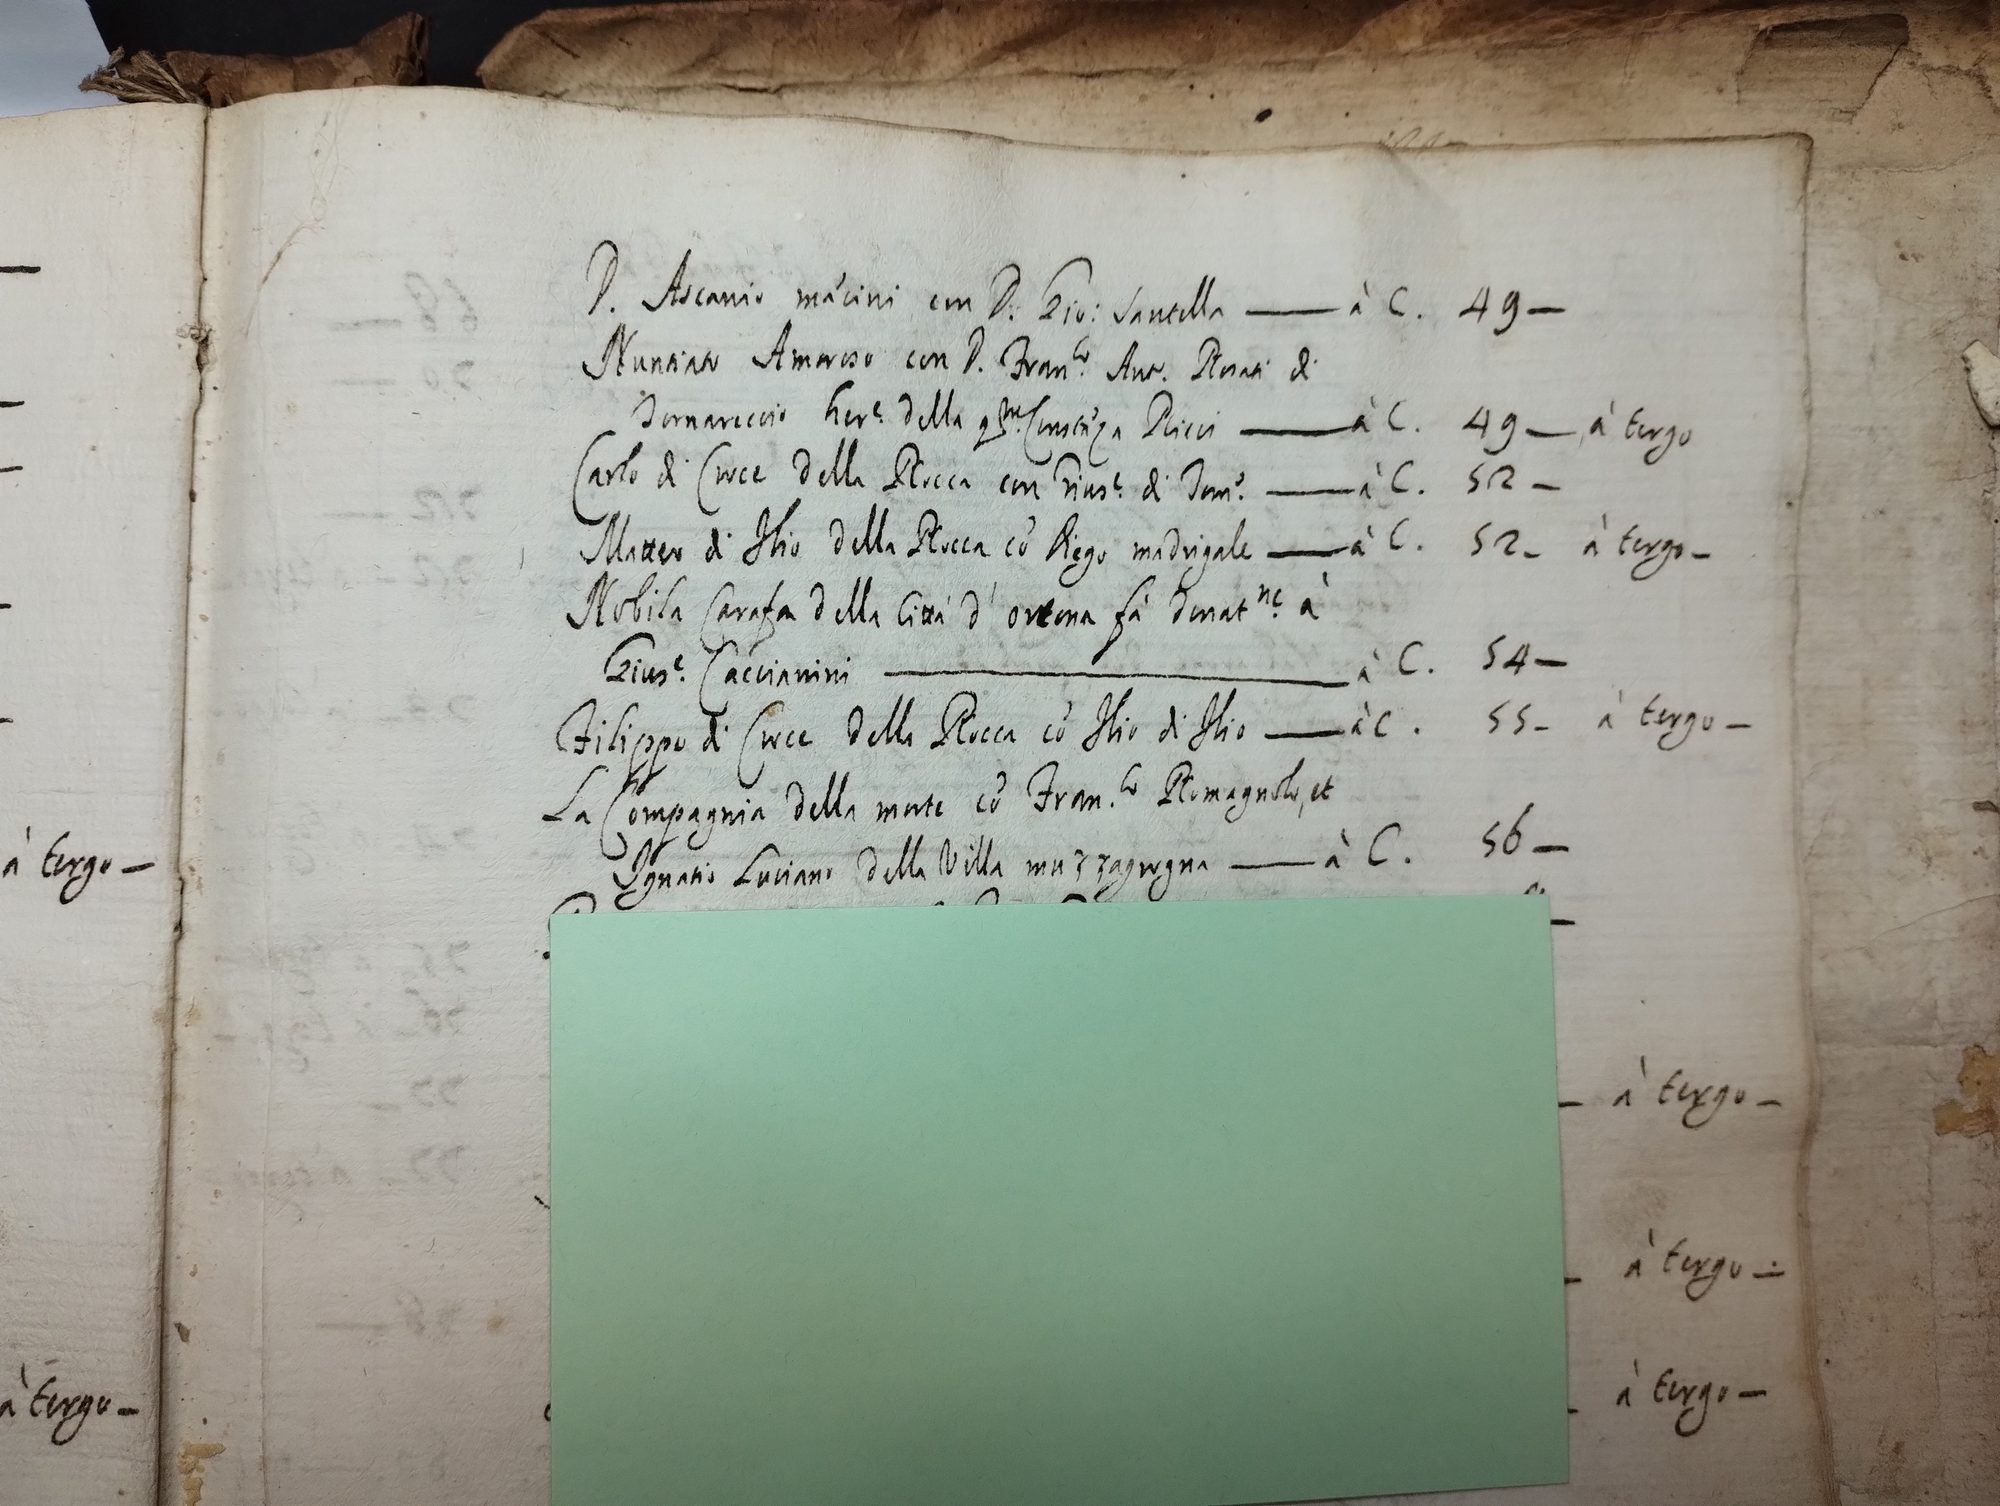 D. Ascanio mãcini con D. Gio: Santella — à C. 49 —
Nuntiato Amoroso con D. Fran.co Ant. Rosati di
Tornareccio here. della qm. Constãza Ricci — à C. 49 — à tergo
Carlo di Croce della Rocca con Gius.e di Dom.o — à C. 52 —
Matteo di Ilio della Rocca cõ Diego madrigale — à C. 52 — à tergo —
Nobila Carafa della Città d' ortona fà donat.ne à
Gius.e Caccianini — à C. 54 —
Filippo di Croce della Rocca cõ Ilio di Ilio — à C. 55 — à tergo —
La Compagnia della morte cõ Fran.co Romagnolo, et
Ignatio Luciano della Villa muzzagrogna — à C. 56 —
à tergo —
à tergo —
à tergo —
à tergo —
à tergo —